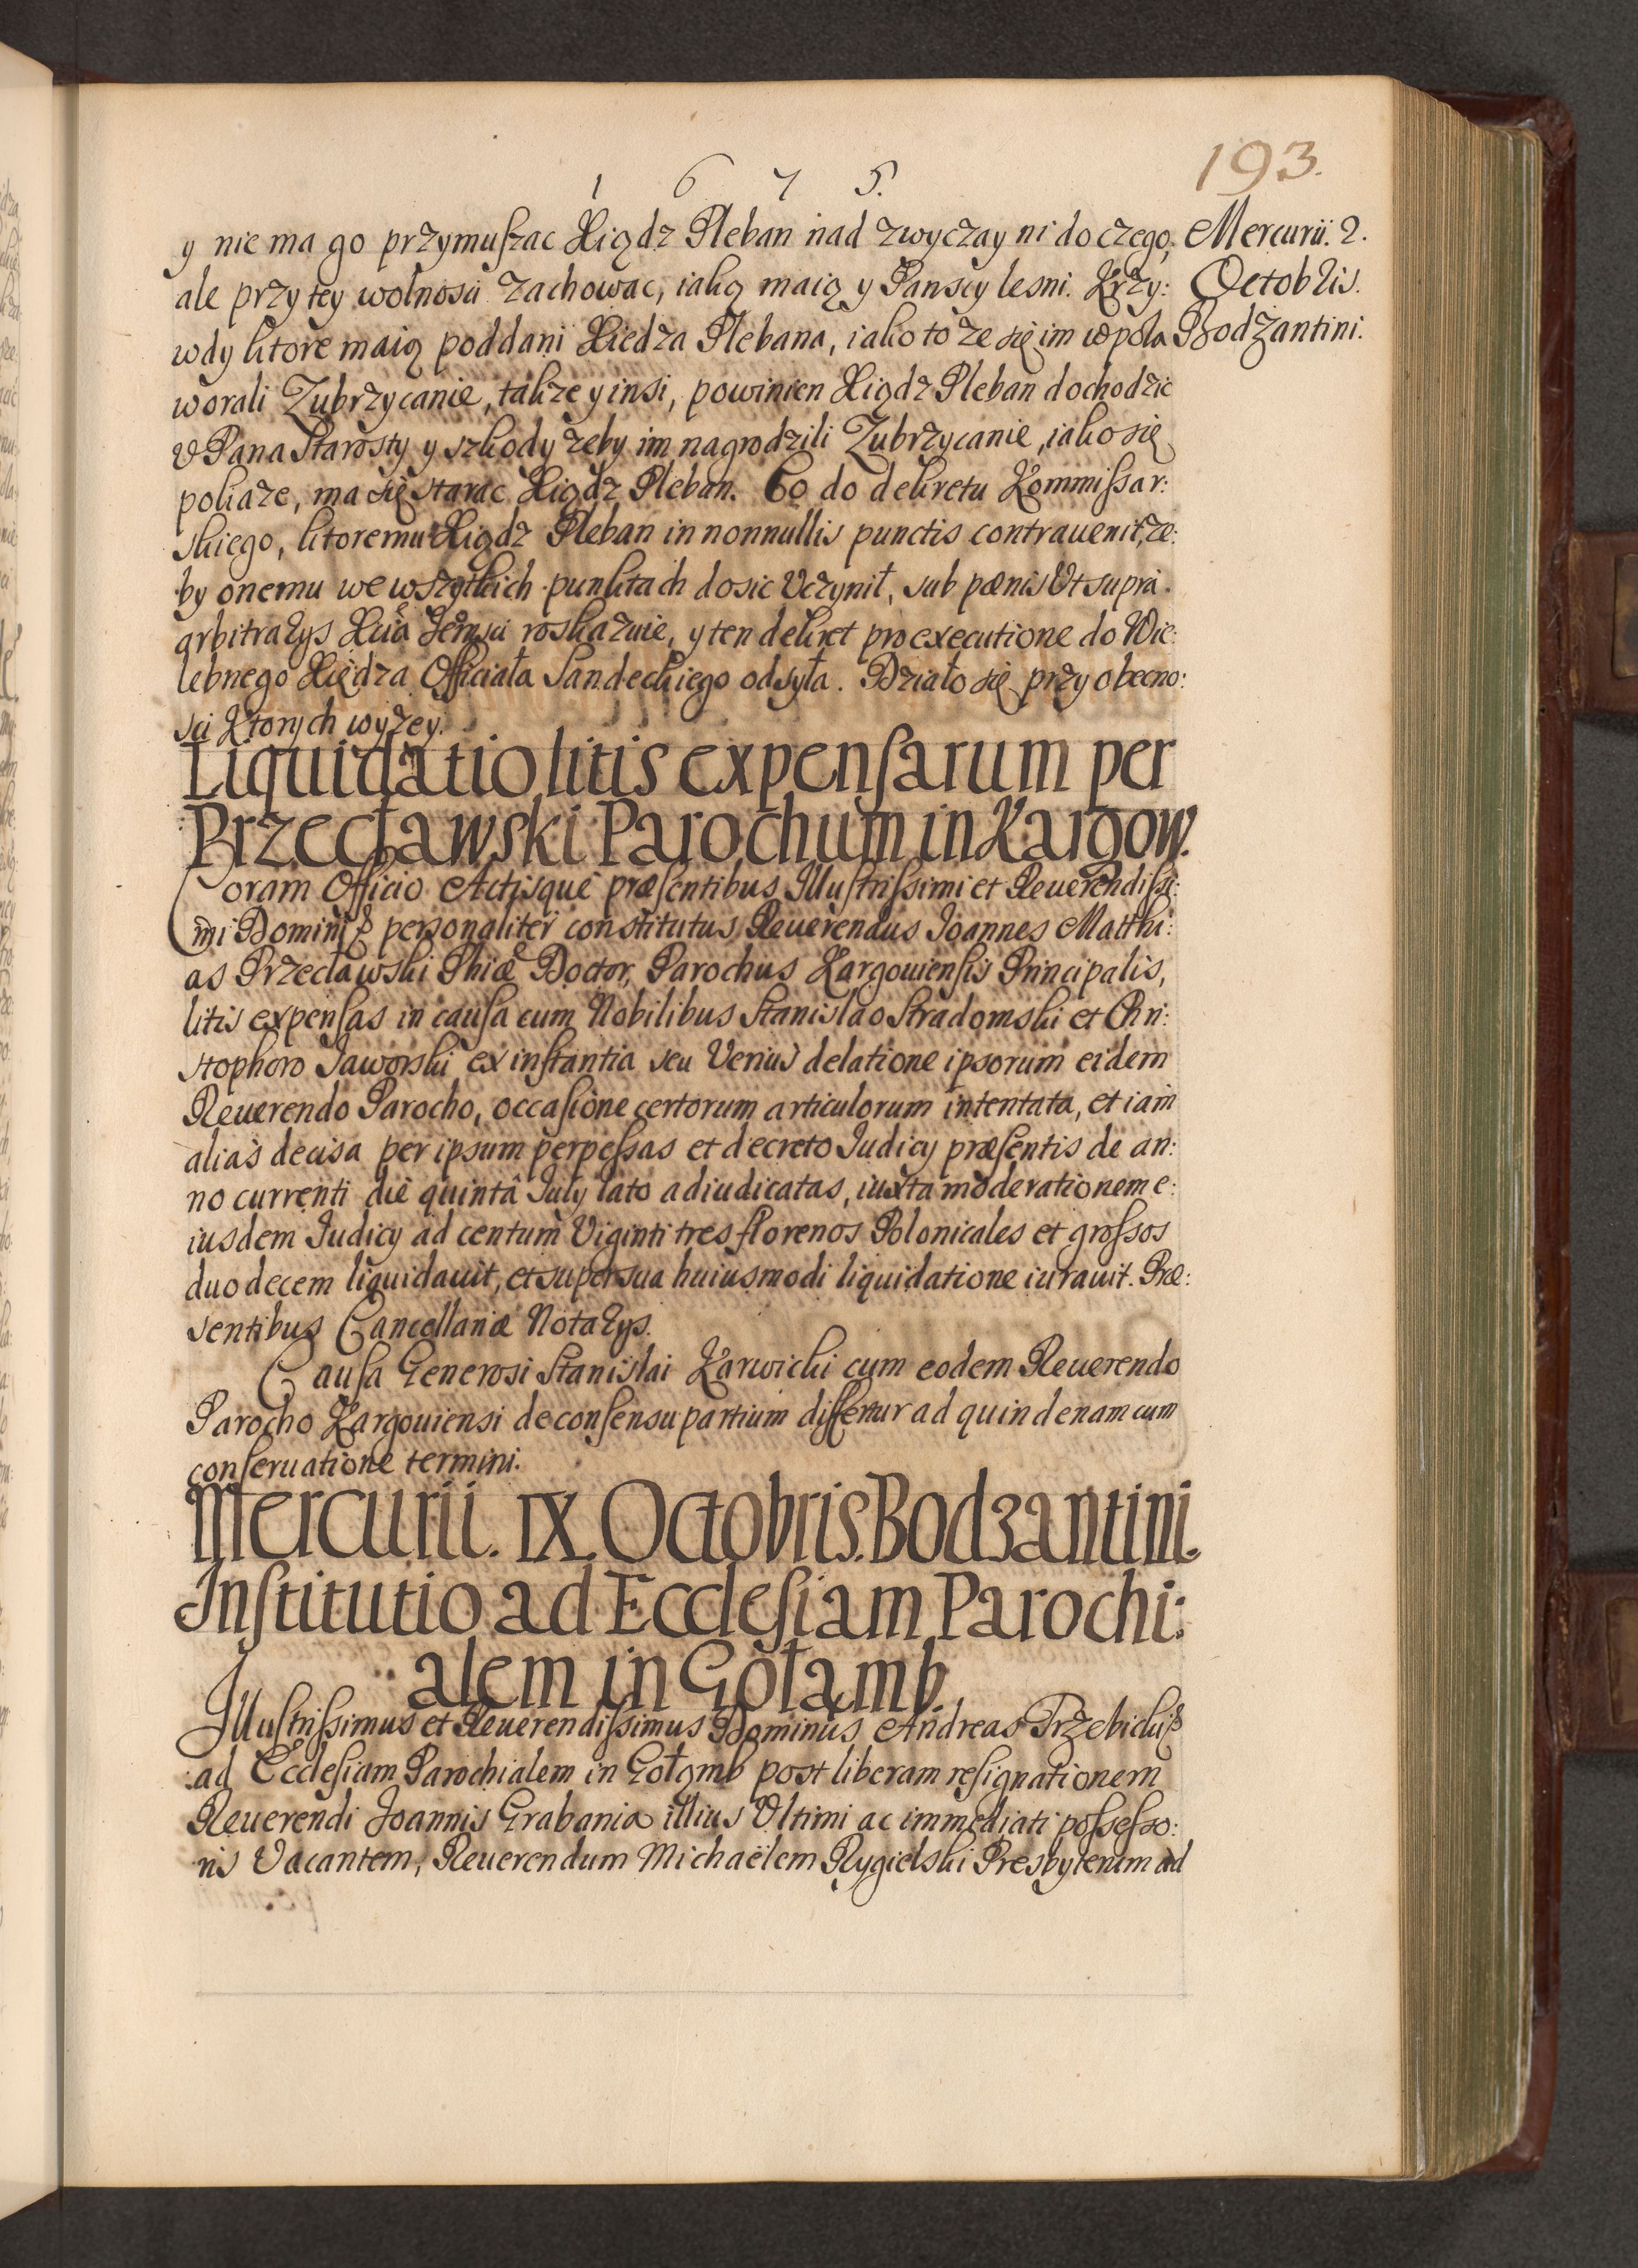 193.
1 6 7 5.
Mercurii. 2.
Octobris.
Bodzantini.
y nie ma go przymuszac Xiądz Pleban nad zwyczay ni do czego,
ale przy tey wolnosci zachowac, iaką maią y Panscy lesni. Krzy:
wdy ktore maią poddani Xiedza Plebana, iako to ze się im w pola
worali Zubrzycanie, także y insi, powinien Xiądz Pleban dochodzic
v Pana Starosty y szkody zeby im nagrodzili Zubrzycanie, iako się
pokaze, ma się starac Xiądz Pleban. Co do dekretu Kommissar:
skiego, ktoremu Xiądz Pleban in nonnullis punctis contrauenił, ze:
by onemu we wszytkich punktach dosic Vczynił, sub pœnis Vt supra.
arbitrarys Xcia Jemsci roskazuie, y ten dekret pro executione do Wie:
lebnego Xiędza Officiała Sandeckiego odsyła. Działo się przy obecno:
sci Ktorych wyzey.
Liquidatio litis expensarum per
Przecławski Parochum in Kargow.
Coram Officio Actisque præsentibus Illustrissimi et Reuerendissi:
mi Domini personaliter constitutus Reuerendus Joannes Matthi:
as Przecławski Phiæ Doctor, Parochus Kargouiensis Principalis,
litis expensas in causa cum Nobilibus Stanislao Stradomski et Chri:
stophoro Jaworski ex instantia seu Verius delatione ipsorum eidem
Reuerendo Parocho, occasione certorum articulorum intentata, et iam
alias decisa per ipsum perpessas et decreto Judicy præsentis de an:
no currenti die quintâ July lato adiudicatas, iuxta moderationem e:
iusdem Judicy ad centum Viginti tres florenos Polonicales et grossos
duodecem liquidauit, et super sua huiusmodi liquidatione iurauit. Præ:
sentibus Cancellariæ Notarys.
Causa Generosi Stanislai Karwicki cum eodem Reuerendo
Parocho Kargouiensi de consensu partium differtur ad quindenam cum
conseruatione termini.
Mercurii. IX. Octobris. Bodzantini.
Institutio ad Ecclesiam Parochi:
alem in Gołamb.
Illustrissimus et Reuerendissimus Dominus Andreas Trzebicki
ad Ecclesiam Parochialem in Gołąmb post liberam resignationem
Reuerendi Joannis Grabania illius Vltimi ac immediati possesso:
ris Vacantem, Reuerendum Michaëlem Rygielski Presbyterum ad